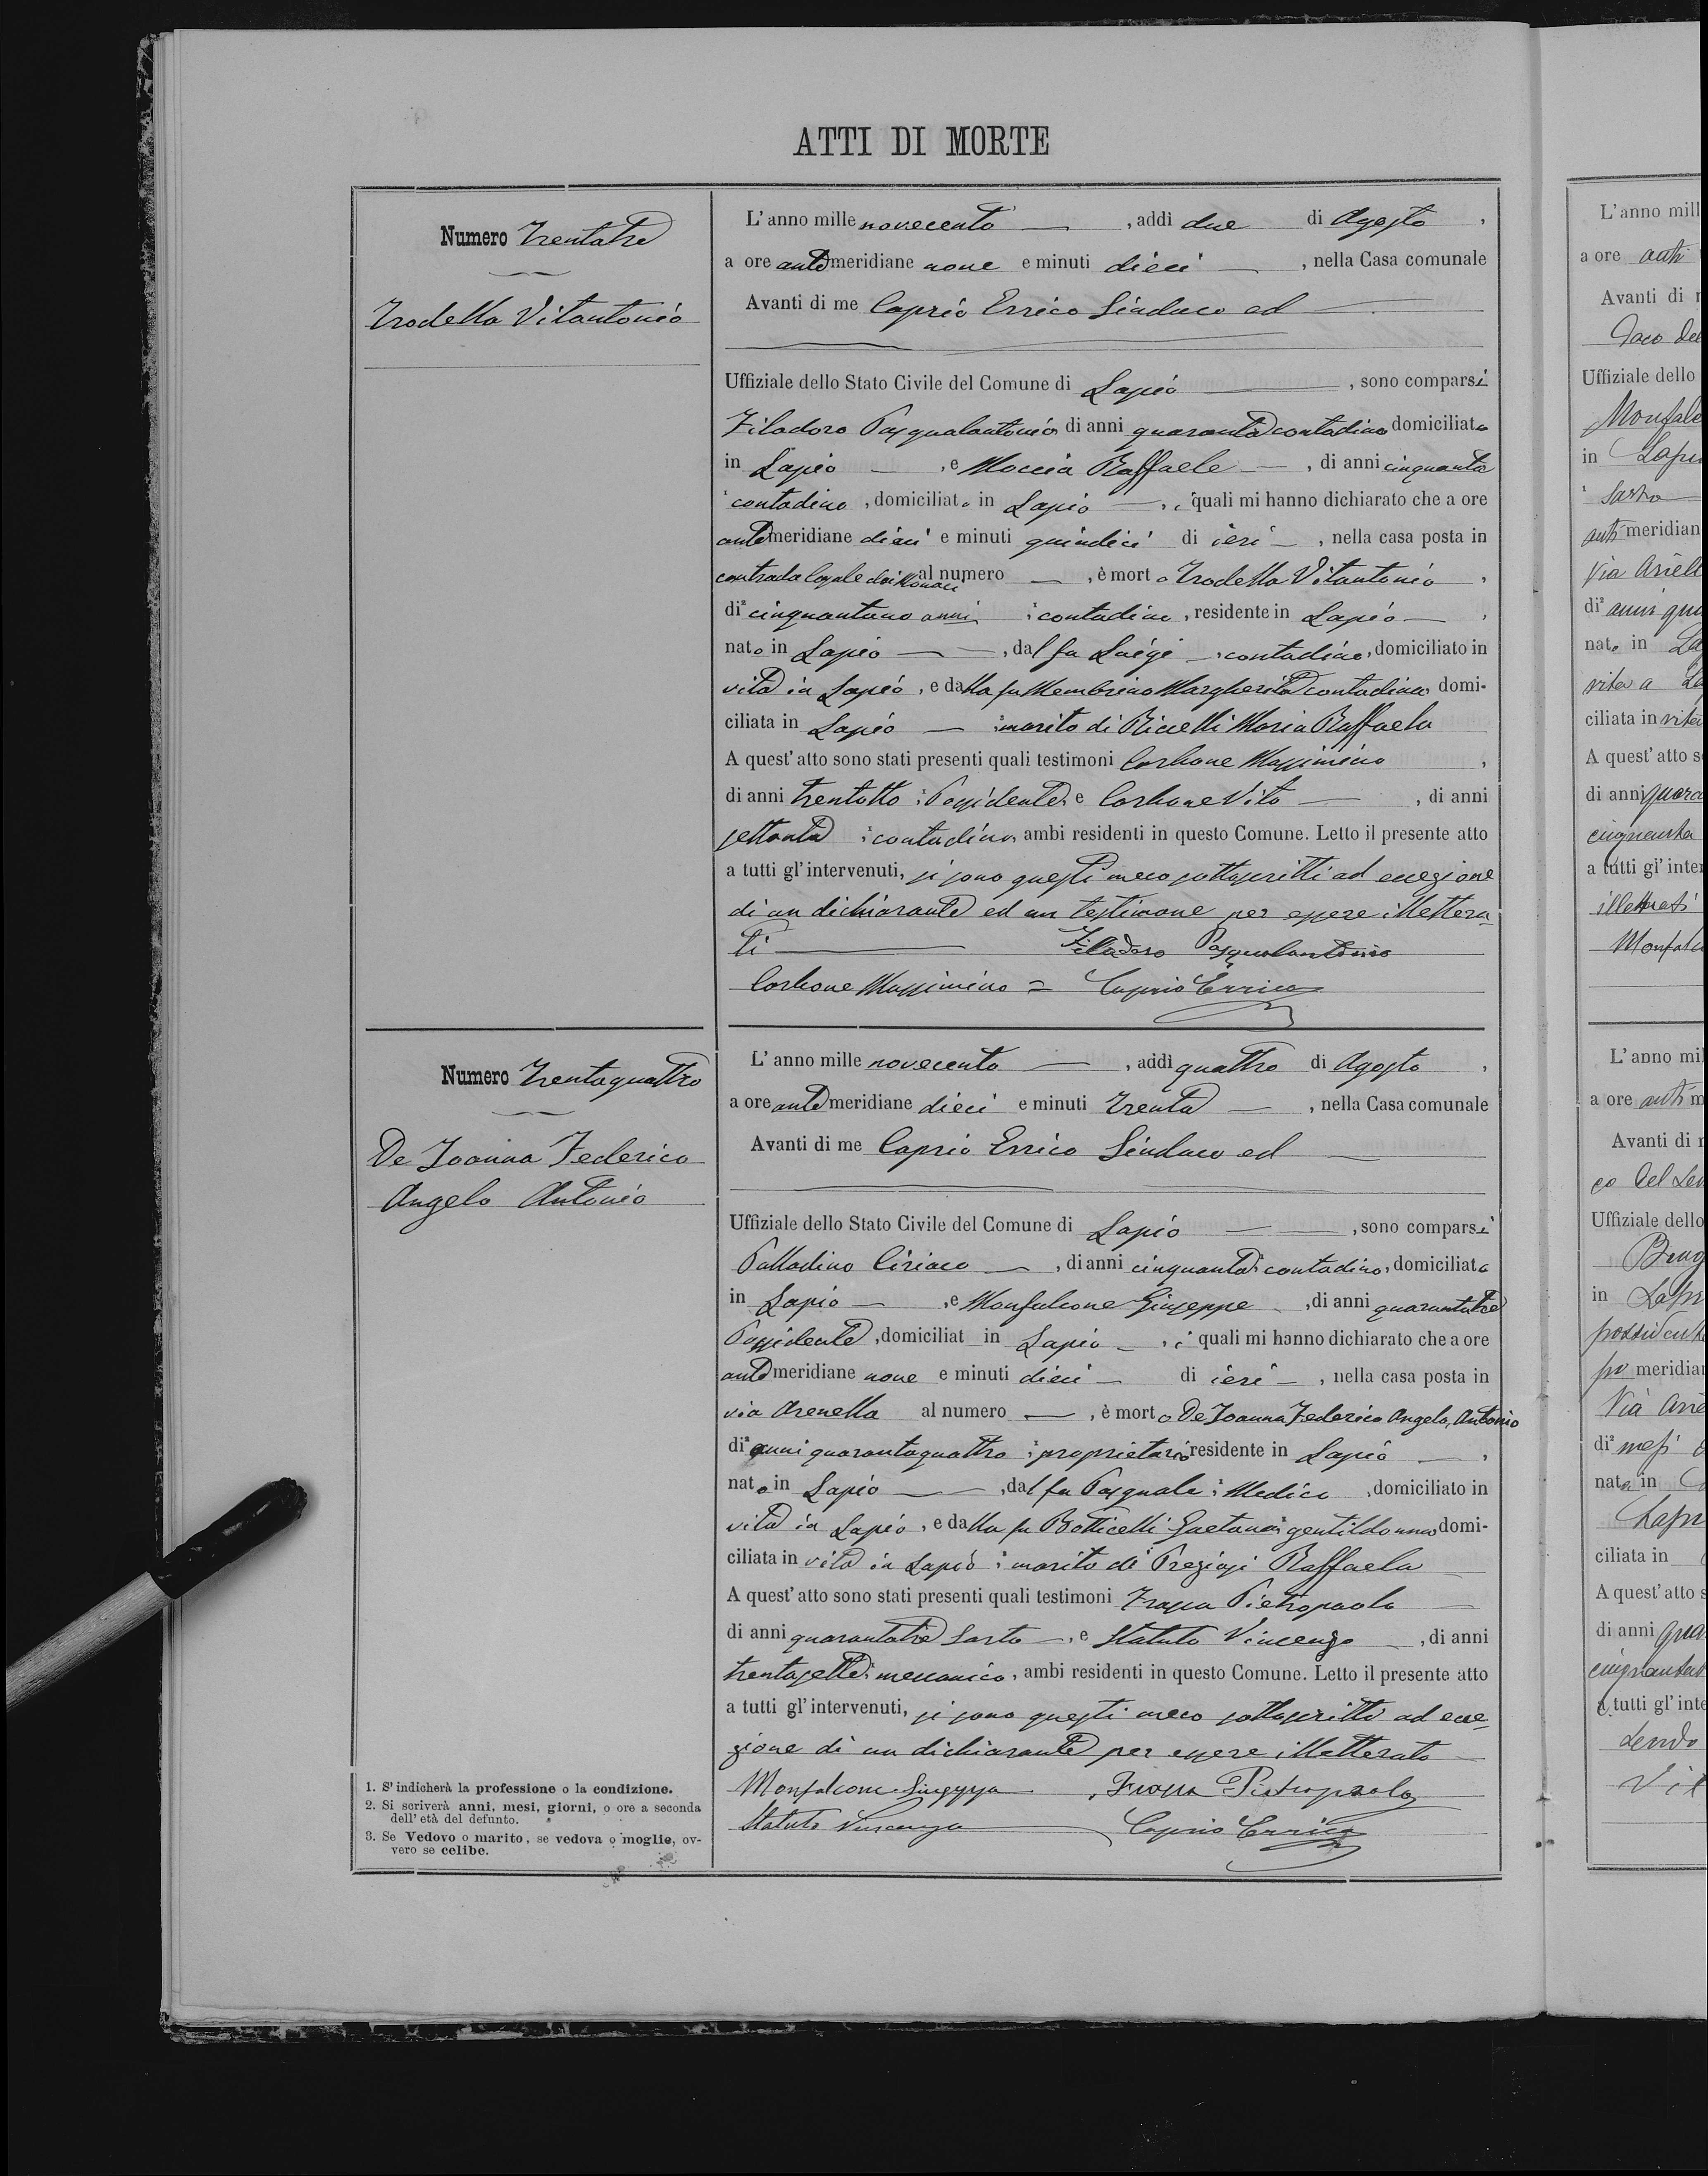 ATTI DI MORTE
Numero Trentatre
Trodella Vitantonio
L'anno mille novecento, addì due di Agosto,
a ore antemeridiane nove e minuti dieci, nella Casa comunale
Avanti di me Caprio Errico Sindaco ed
Uffiziale dello Stato Civile del Comune di Lapio, sono comparsi
Filadoro Pasqualantonio di anni quaranta contadino domiciliato
in Lapio, e Moccia Raffaele, di anni cinquanta
contadino, domiciliato in Lapio, i quali mi hanno dichiarato che a ore
antemeridiane dieci e minuti quindici di ieri, nella casa posta in
contrada dei Monaci al numero, è morto Trodella Vitantonio,
di cinquantuno anni contadino, residente in Lapio,
nato in Lapio, dal fu Luigi, contadino, domiciliato in
vita in Lapio, e dalla fu Membrino Margherita contadina domi-
ciliata in Lapio marito di Riccelli Maria Raffaela
A quest'atto sono stati presenti quali testimoni Carbone Massimino,
di anni trentotto Possidente e Carbone Vito, di anni
settanta contadino, ambi residenti in questo Comune. Letto il presente atto
a tutti gl'intervenuti, si sono questi meco sottoscritti ad eccezione
di un dichiarante ed un testimone per essere illettera-
ti Filadoro Pasqualantonio
Carbone Massimino = Caprio Errico
Numero Trentaquattro
De Joanna Federico
Angelo Antonio
L'anno mille novecento, addì quattro di Agosto,
a ore antemeridiane dieci e minuti trenta, nella Casa comunale
Avanti di me Caprio Errico Sindaco ed
Uffiziale dello Stato Civile del Comune di Lapio, sono comparsi
Palladino Ciriaco, di anni cinquanta contadino, domiciliato
in Lapio, e Monfalcone Giuseppe, di anni quarantatre
Possidente, domiciliat in Lapio, i quali mi hanno dichiarato che a ore
antemeridiane nove e minuti dieci di ieri, nella casa posta in
via Arenella al numero, è morto De Joanna Federico Angelo, Antonio
di anni quarantaquattro proprietario residente in Lapio,
nato in Lapio, dal fu Pasquale Medico, domiciliato in
vita in Lapio, e dalla fu Botticelli Gaetana gentildonna domi-
ciliata in vita in Lapio marito di Preziosi Raffaela
A quest'atto sono stati presenti quali testimoni Frappa Pietropaolo
di anni quarantatre Sarto, e Statuto Vincenzo, di anni
trentasette meccanico, ambi residenti in questo Comune. Letto il presente atto
a tutti gl'intervenuti, si sono questi meco sottoscritti ad ecce-
zione di un dichiarante per essere illetterato
Monfalcone Giuseppe, Frappa Pietropaolo
Statuto Vincenzo Caprio Errico
1. S'indicherà la professione o la condizione.
2. Si scriverà anni, mesi, giorni, o ore a seconda
dell'età del defunto.
3. Se Vedovo o marito, se vedova o moglie, ov-
vero se celibe.
L'anno mill
a ore anti
Avanti di
Uffiziale dello
Monfalc
in Lapi
anti meridian
via Ariell
di anni
nato in La
vita a La
ciliata in vita
A quest'atto s
di anni
cinquanta
a tutti gl'inter
illetterati
Monfalc
L'anno mil
a ore anti m
Avanti di
Uffiziale dello
in Lapi
possident
po meridian
Via
di mesi
nata in
Lapi
ciliata in
A quest'atto s
di anni qua
a tutti gl'inte